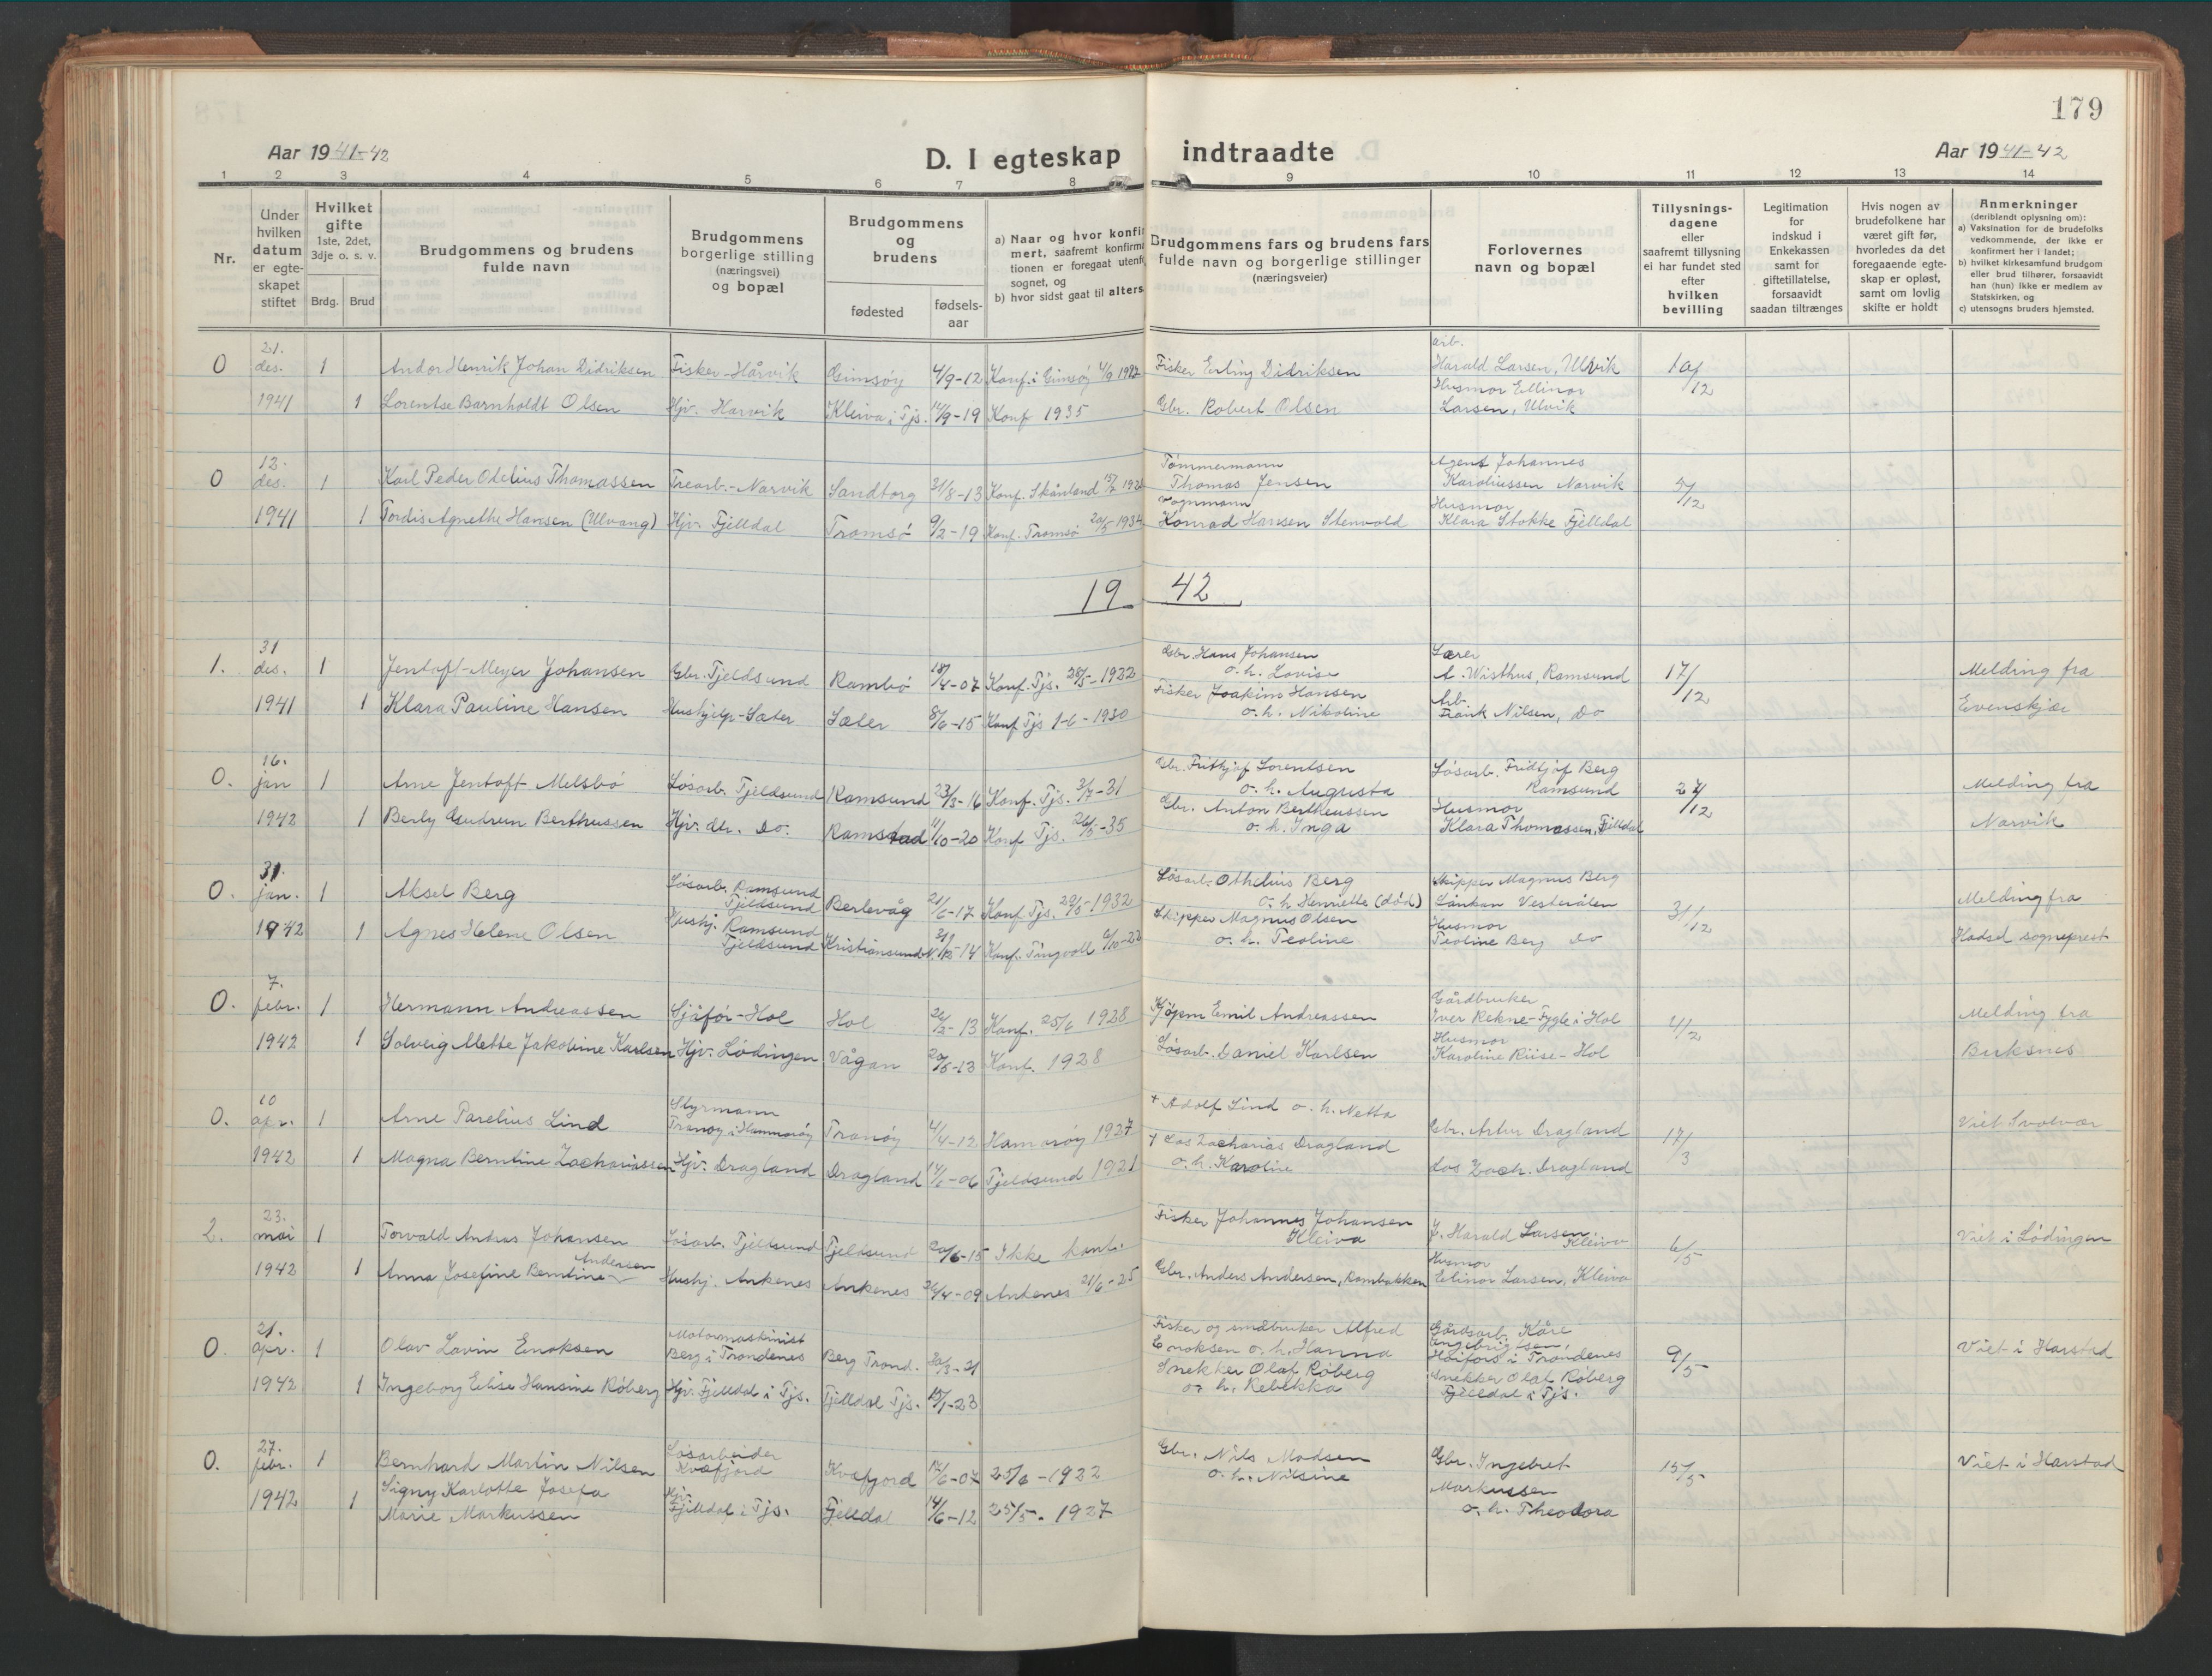 179
Aar 1941-42
D. I egteskap indtraadte
Aar 1941-42
1 2 3 4 5 6 7 8 9 10 11 12 13 14
Nr.
Under hvilken datum er egteskapet stiftet
Hvilket gifte 1ste, 2det, 3dje o. s. v.
Brdg. Brud
Brudgommens og brudens fulde navn
Brudgommens borgerlige stilling (næringsvei) og bopæl
Brudgommens og brudens
fødested
fødsels-aar
a) Naar og hvor konfirmert, saafremt konfirmationen er foregaat utenfor sognet, og
b) hvor sidst gaat til alters
Brudgommens fars og brudens fars fulde navn og borgerlige stillinger (næringsveier)
Forlovernes navn og bopæl
Tillysnings-dagene eller saafremt tillysning ei har fundet sted efter hvilken bevilling
Legitimation for indskud i Enkekassen samt for giftetillatelse, forsaavidt saadan tiltrænges
Hvis nogen av brudefolkene har været gift før, hvorledes da det foregaaende egteskap er opløst, samt om lovlig skifte er holdt
Anmerkninger (deriblandt oplysning om):
a) Vaksination for de brudefolks vedkommende, der ikke er konfirmert her i landet;
b) hvilket kirkesamfund brudgom eller brud tilhører, forsaavidt han (hun) ikke er medlem av Statskirken, og
c) utensogns bruders hjemsted.
0 21. des. 1 Andor Henrik Johan Didriksen Fisker - Hårvik Gimsøy 4/9-12 Konf. i Gimsøy Fisker Erling Didriksen arb. Harald Larsen, Ulvik 10/12
1941 1 Lorentse Barnholdt Olsen Hjv. Harvik Kleiva i Tjs. 14/9-19 Konf 1935 Gbr. Robert Olsen Husmor Ellinor Larsen, Ulvik
0 12. des. 1 Karl Peder Otelius Thomassen Trearb. - Narvik Sandtorg 31/8-13 Konf. Skånland Tømmermann Thomas Jensen Agent Johannes Karoliussen Narvik 5/12
1941 1 Tordis Agnethe Hansen (Ulvang) Hjv. Fjelldal Tromsø 9/2-19 Konf. Tromsø 20/5-1934 Vognmann Konrad Hansen Stenvold Husmor Klara Stokke Fjelldal
19 42
1. 31 des. 1 Jentoft-Meyer Johansen Gbr. Tjeldsund Rambø 18/4-07 Konf. Tjs. 28/5-1922 Gbr. Hans Johansen o. h. Lovise Lærer A. Wisthus, Ramsund 17/12 Melding fra
1941 1 Klara Pauline Hansen Hushjelp - Sæter Sæter 8/6-15 Konf Tjs 1-6-1930 Fisker Joakim Hansen o. h. Nikoline Arb. Frank Nilsen, Do Evenskjær
0. 16. jan 1 Arne Jentoft Melsbø Løsarb. Tjeldsund Ramsund 23/3-16 Konf. Tjs. 3/7-31 Gbr. Frithjof Lorentsen o. h. Augusta Løsarb. Fridtjof Berg Ramsund 27/12 Melding fra
1942 1 Berly Gudrun Berthussen Hjv. dtr. Do. Ramstad 11/10-20 Konf Tjs. 26/5-35 Gbr. Anton Bertheussen o. h. Inga Husmor Klara Thomassen, Fjelldal Narvik
0. 31. jan. 1 Aksel Berg Løsarb. Ramsund Tjeldsund Berlevåg 21/6-17 Konf. Tjs. 29/5-1932 Løsarb. Othelius Berg o. h Henriette (død) Skipper Magnus Berg Sånkan Vesterålen 31/12 Melding fra
1942 1 Agnes Helene Olsen Hushj. Ramsund Tjeldsund Kristiansund N. -14 Konf. Tingvoll Skipper Magnus Olsen o. h. Teoline Husmor Teoline Berg Do Hadsel sogneprest
0. 7. febr. 1 Hermann Andreassen Sjåfør - Hol Hol -13 Konf. 25/6 1928 Kjøpm Emil Andreassen Gårdbruker Iver Rekne - Fygle i Hol 4/2 Melding fra
1942 1 Solveig Mette Jakobine Karlsen Hjv. Lødingen Vågan 20/5-13 Konf. 1928 Løsarb. Daniel Karlsen Husmor Karoline Riise - Hol Buksnes
0. 10 apr. 1 Arne Parelius Lind Styrmann Tranøy i Hammarøy Tranøy 4/4-12 Hamarøy 1927 + Adolf Lind o. h. Netta Gbr. Artur Dragland 17/3 Viet Svolvær
1942 1 Magna Berntine Zachariassen Hjv. Dragland Dragland 14/1-06 Tjeldsund 1921 + Los Zacharias Dragland o. h. Karoline Los Zach. Dragland
2. 23. mai 1 Torvald Andras Johansen Løsarb. Tjeldsund Tjeldsund 20/6-15 Ikke konf. Fisker Johannes Johansen Kleiva J. Harald Larsen, Kleiva 6/5 Viet i Lødingen
1942 1 Anna Josefine Berntine Andersen Hushj. Ankenes Ankenes 26/4-09 Ankenes 21/6-25 Gbr. Anders Andersen, Rombakken Husmor Elinor Larsen, Kleiva
0. 21. apr. 1 Olav Lavin Enoksen Motormaskinist Berg i Trondenes Berg Trond. 20/3-21 Fisker og småbruker Alfred Enoksen o. h. Hanna Gårdsarb. Kåre Ingebrigtsen, Høifors i Trondenes 9/5 Viet i Harstad
1942 1 Ingeborg Elise Hansine Røberg Hjv. Fjelldal i Tjs. Fjelldal Tjs. 15/1-23 Snekker Olaf Røberg o. h. Rebekka Snekker Olaf Røberg Fjelldal i Tjs.
0. 27. febr. 1 Bernhard Martin Nilsen Løsarbeider Kvæfjord Kvæfjord 12/6-07 25/6-1922 Gbr. Nils Madsen o. h. Nilsine Gbr. Ingebret Markussen o. h. Theodora 15/5 Viet i Harstad
1942 1 Signy Karlotte Josefa Marie Markussen Hjv. Fjelldal i Tjs. Fjelldal 14/6-12 25/5-1927